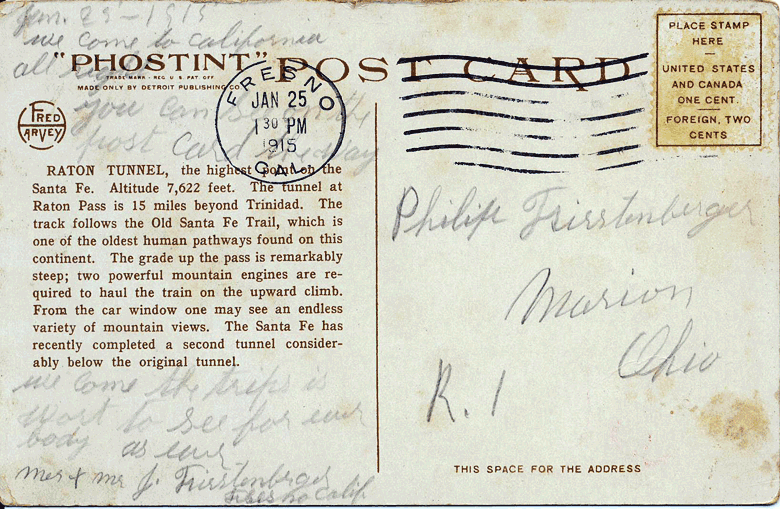 Jan. 25 - 1915
we come to California
all right
"PHOSTINT" POST CARD
TRADE MARK - REG. U. S. PAT. OFF.
MADE ONLY BY DETROIT PUBLISHING CO.
you can see on the
post card the way
FRED
HARVEY
FRESNO
JAN 25
1 30 PM
1915
CAL.
PLACE STAMP
HERE
UNITED STATES
AND CANADA
ONE CENT.
FOREIGN, TWO
CENTS
RATON TUNNEL, the highest point on the
Santa Fe. Altitude 7,622 feet. The tunnel at
Raton Pass is 15 miles beyond Trinidad. The
track follows the Old Santa Fe Trail, which is
one of the oldest human pathways found on this
continent. The grade up the pass is remarkably
steep; two powerful mountain engines are re-
quired to haul the train on the upward climb.
From the car window one may see an endless
variety of mountain views. The Santa Fe has
recently completed a second tunnel consider-
ably below the original tunnel.
we come the trips is
wort to see for
body as
J. Frisstenberger
Calif
Philip Frisstenberger
Marion
Ohio
R. 1
THIS SPACE FOR THE ADDRESS